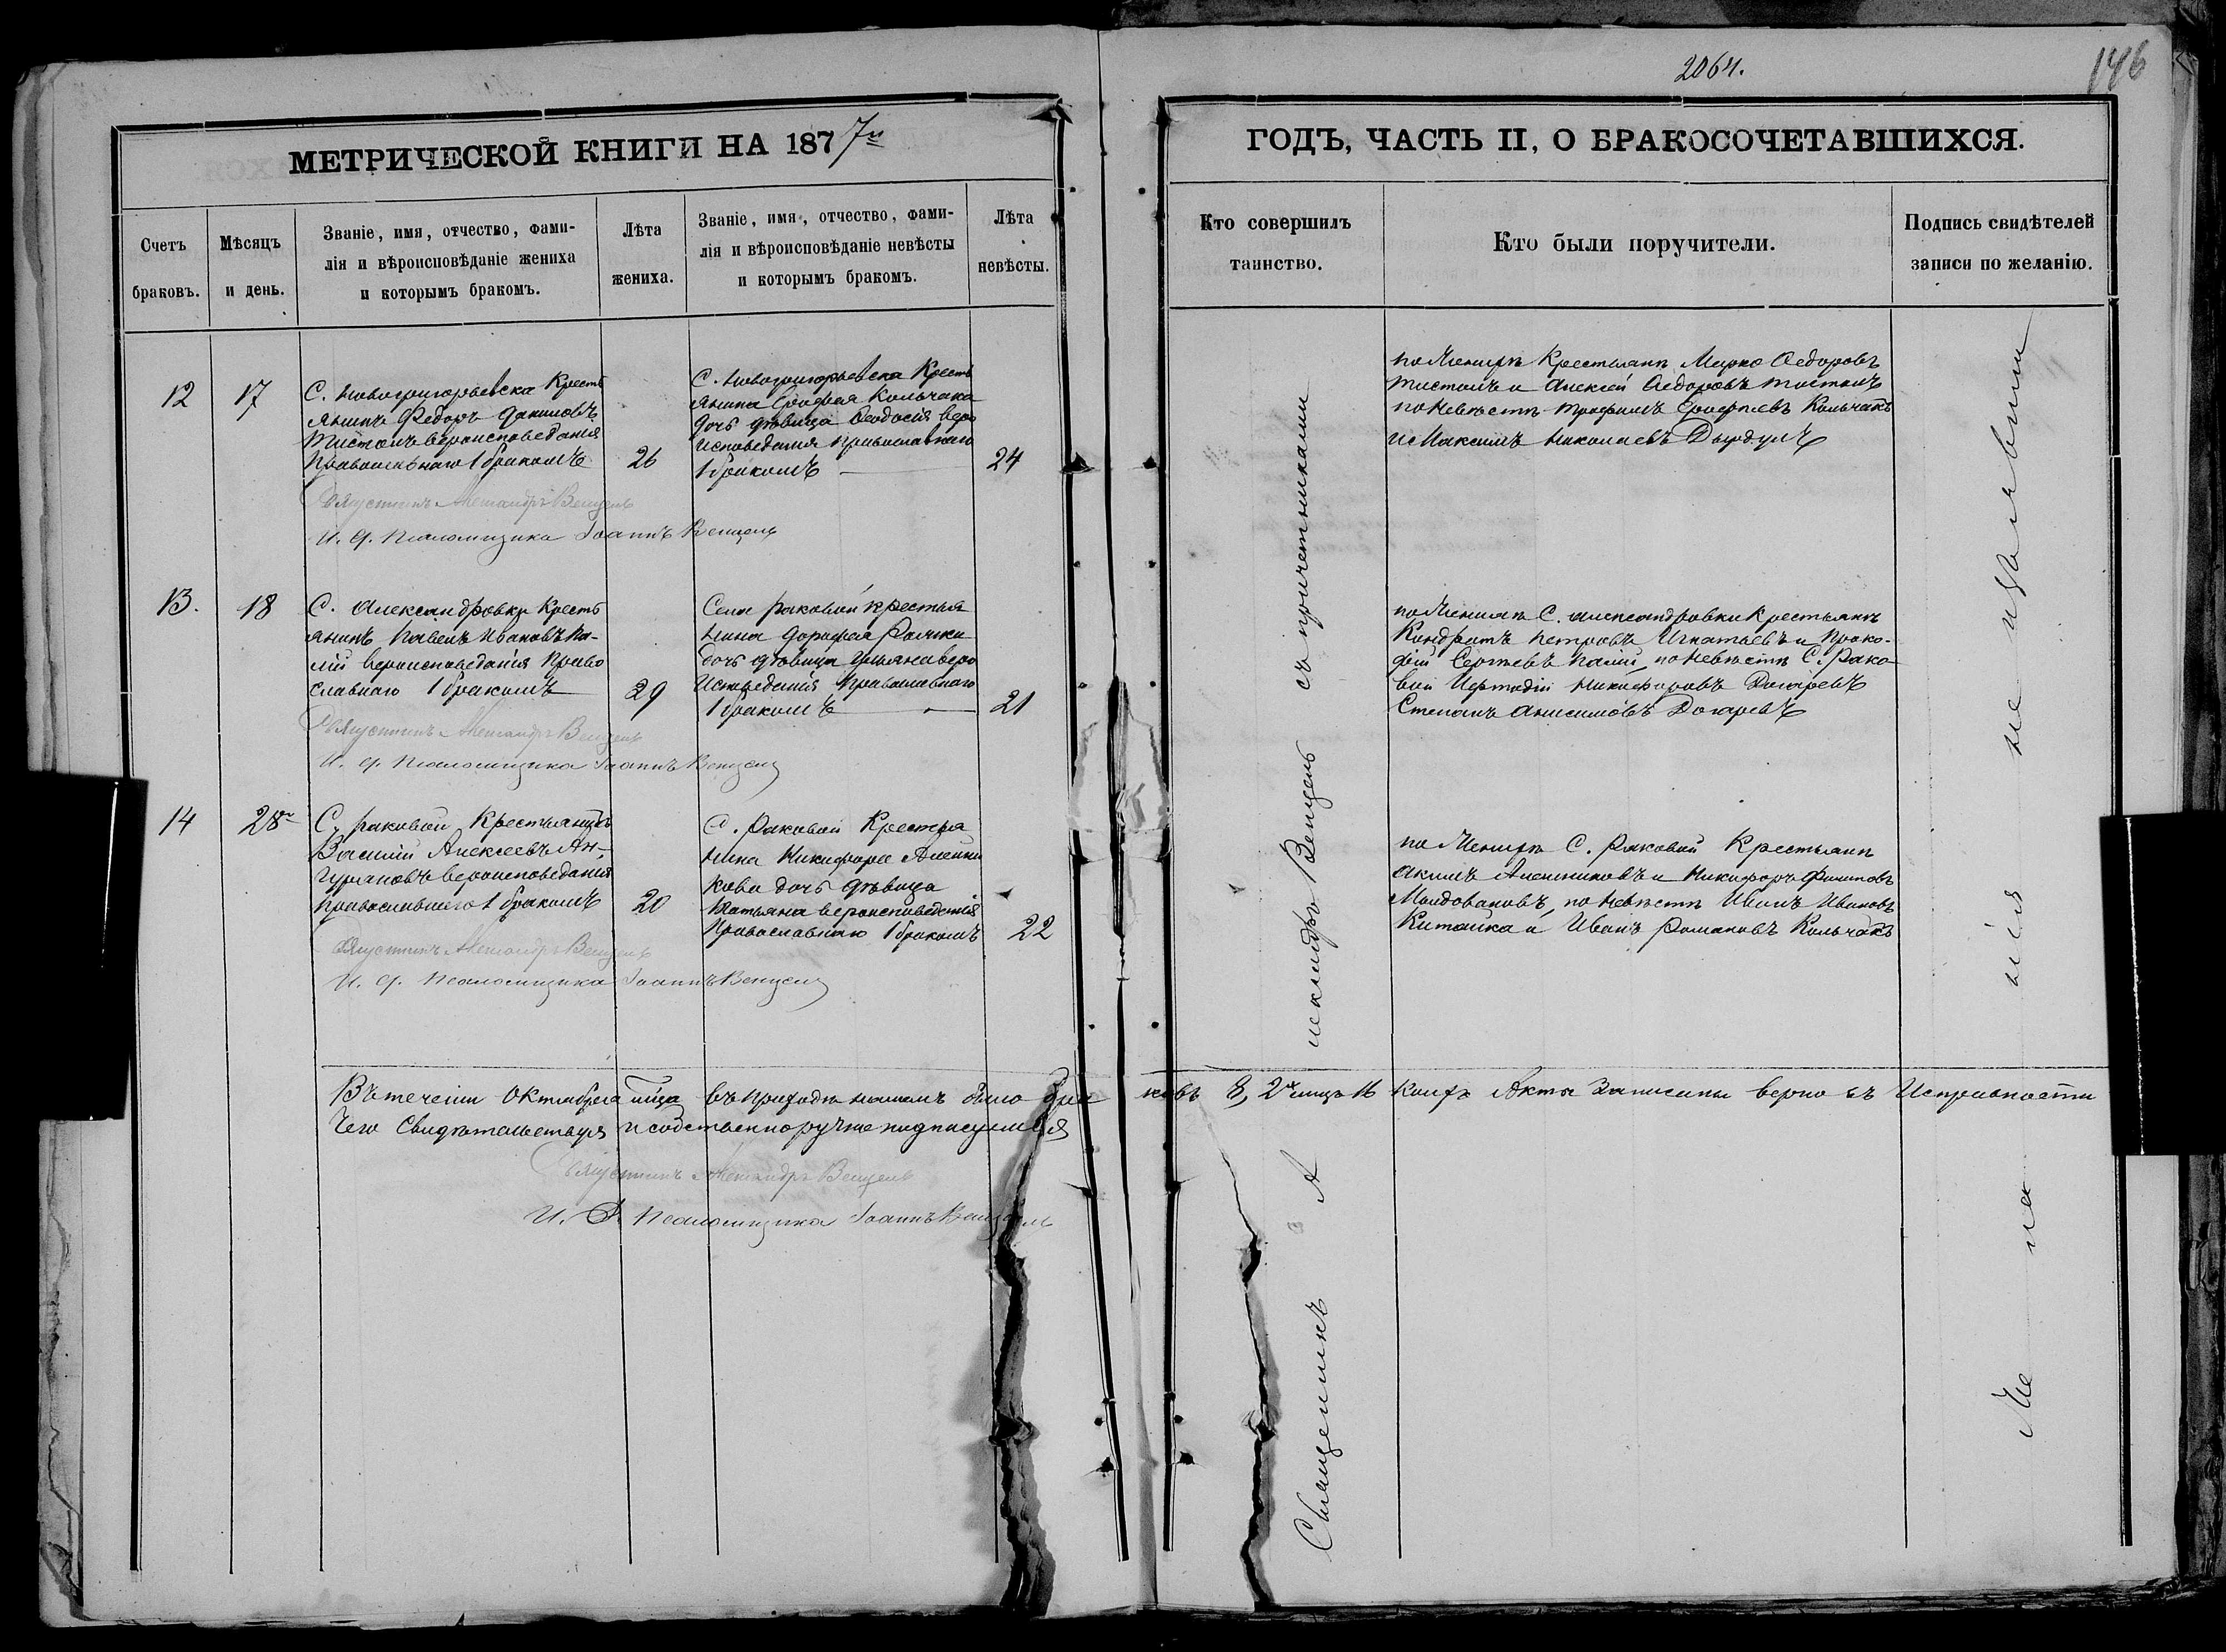 2064.
146
МЕТРИЧЕСКОЙ КНИГИ НА 1877й
ГОДЪ, ЧАСТЬ II, О БРАКОСОЧЕТАВШИХСЯ.
Счетъ браковъ.
Мѣсяцъ и день.
Званіе, имя, отчество, фами-
лія и вѣроисповѣданіе жениха
и которымъ бракомъ.
Лѣта
жениха.
Званіе, имя, отчество, фами-
лія и вѣроисповѣданіе невѣсты
и которымъ бракомъ.
Лѣта
невѣсты.
Кто совершилъ
таинство.
Кто были поручители.
Подпись свидѣтелей
записи по желанію.
12
17
С. Новогригорьевска Кресть
янинъ Федоръ
вероисповеданія
Православнаго 1 бракомъ
26
С. Новогригорьевска Кресть
янина Ерофея Кольчака
дочь дѣвица Феодосія веро
исповеданія православнаго
1 бракомъ
24
по Женихѣ Крестьяне Марко Федоровъ
и Алексей Федоровъ
по Невѣстѣ Трофимъ Ерофеевъ Кольчакъ
и Максимъ Николаевъ
Священникъ Александръ Венцель
И. д. Псаломщика Іоаннъ Венцель
13.
18
С. Александровки Кресть
янинъ Павелъ Ивановъ Па-
лій вероисповеданія Право
славнаго 1 бракомъ
29
Села Раковой крестья
нина Дорофея
дочь дѣвица Ульяна веро
исповеданія Православнаго
1 бракомъ
21
по Женихѣ С. Александровки Крестьяне
Кондратъ Петровъ Игнатьевъ и Проко-
фій Сергѣевъ Палій, по Невѣстѣ С. Рако
вой Никифоровъ Догаревъ
Степанъ Анисимовъ Догаревъ
Священникъ Александръ Венцель
И. д. Псаломщика Іоаннъ Венцель
14
28й
С. Раковой Крестьянинъ
Василій Алексеевъ Ан-
гурановъ вероисповеданія
православнаго 1 бракомъ
20
С. Раковой Крестья
нина Никифора Алейни
кова дочь дѣвица
Татьяна вероисповеданія
Православнаго 1 бракомъ
22
по Женихѣ С. Раковой Крестьяне
Акимъ Алейниковъ и Никифоръ Филиповъ
Молдовановъ, по Невѣстѣ Иванъ Ивановъ
Китайка и Иванъ Романовъ Кольчакъ
Священникъ Александръ Венцель
И. д. Псаломщика Іоаннъ Венцель
Священникъ Александръ Венцель съ причетниками
Въ теченіи Октября м-ца въ приходѣ нашемъ было бра ковъ 8, лицъ 16 Акты Записаны верно въ Исправности
Чего Свидѣтельствуя и собственноручно подписуемся
Священникъ Александръ Венцель
И. Д. Псаломщика Іоаннъ Венцель